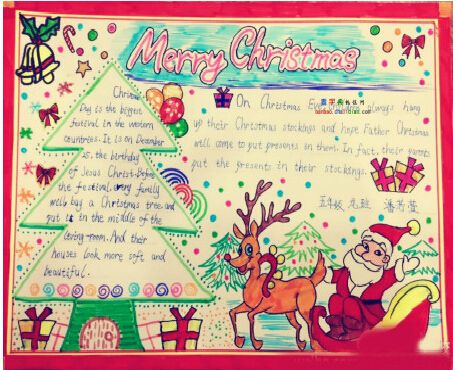 Merry Christmas
Christmas
Day is the biggest
festival in the western
countries. It is on December
is the birthday
of Jesus Christ. Before
the festival, every family
will buy a Christmas tree and
put it in the middle of the
living-room. And their
houses look more soft and
beautiful.
On Christmas Eve, always hang
up their Christmas stockings and hope Father Christmas
will come to put presents in them. In fact, their parents
put the presents in their stockings.
五年级